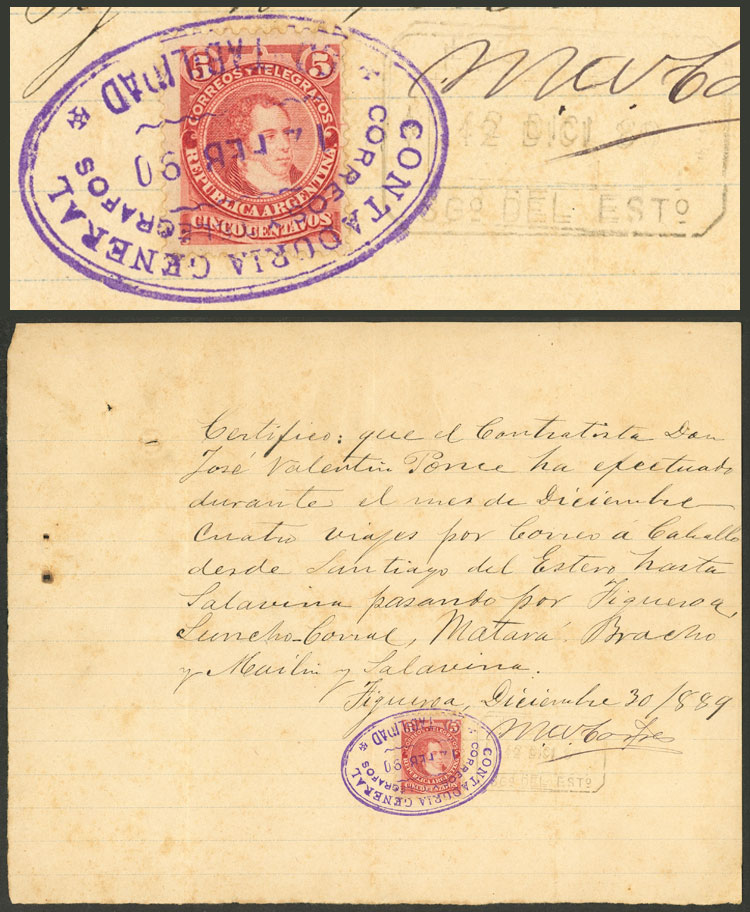 CONTADURIA GENERAL
CORREOS Y TELEGRAFOS
14 FEB 90
5 5
CORREOS Y TELEGRAFOS
REPUBLICA ARGENTINA
CINCO CENTAVOS
12 DICI 89
SGO DEL ESTO
Certifico: que el Contratista Don
José Valentin Ponce ha efectuado
durante el mes de Diciembre
cuatro viajes por Correo á Caballo
desde Santiago del Estero hasta
Salavina pasando por Figueroa,
Suncho-Corral, Matará. Bracho
y Mailin y Salavina.
Figueroa, Diciembre 30/889
CONTADURIA GENERAL
CORREOS
GRAFOS
FEB 90
5
DEL ESTO